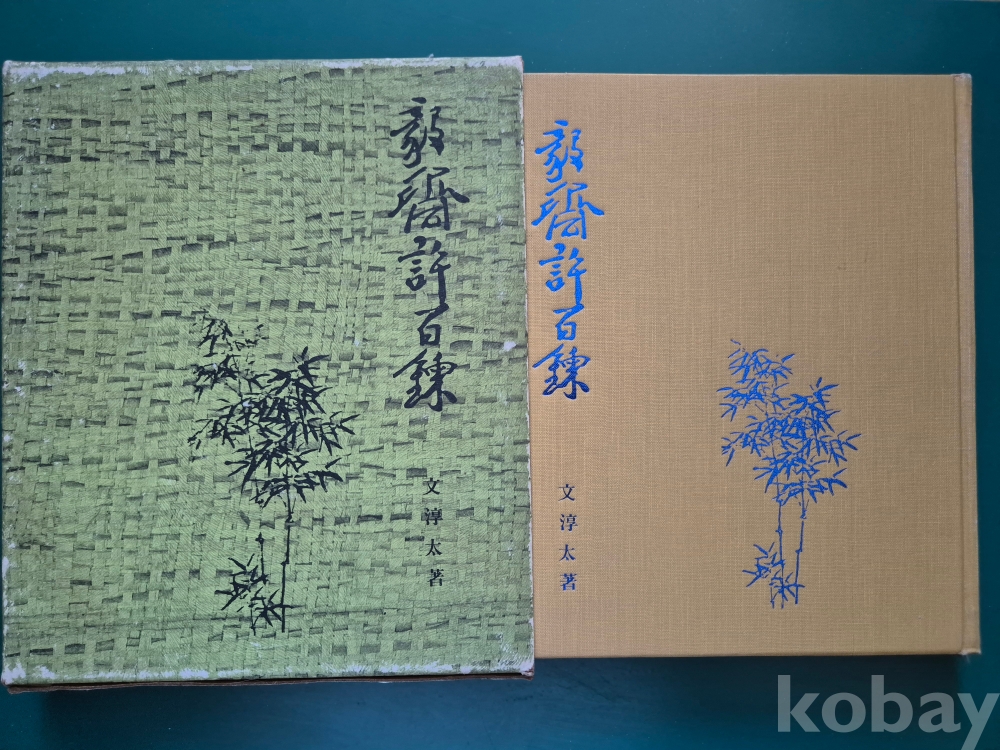 毅齋許百鍊
文淳太著
毅齋許百鍊
文淳太著
kobay